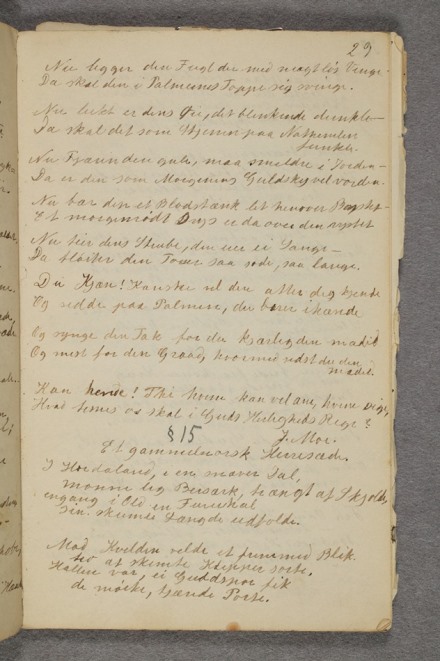 29
Nu ligger den Fugl der med magtløs Vinge.
Da skal den i Palmernes Toppe sig svinge.
Nu lukt er dens Øie, det blinkende dunkle
Da skal det som Stjerner paa Nathimlen
funkle.
Nu Fjæren den gule, maa smuldre i Jorden
Da er den som Morgenens Guldsky vel vorden.
Nu bar den et Blodstænk let henover Brystet
Et morgenrødt er da over den
Nu tier dens Strube, den eier ei Sange
Da fløiter den Toner saa søde, saa lange.
Du Kjære! Kanske vil den atter dig kjende
Og sidde paa Palmen, du bærer ihænde
Og synge den Tak for du kjærligen madede
Og mest for den Graad, hvormed sidst du den
Kan hænde! Thi hvem kan vel ane, hvem sige,
Hvad hendes os skal i Guds Herligheds Rige?
J. Moe.
§ 15
Et gammelnorsk Herresæde.
I Hordaland, i en snæver Dal,
Berserk, trængt af Skjolde,
engang i Old en Furuskal
sin skumle Længde udfolde.
Mod Kvelden vilde et Blik
af skumle Klipper sorte.
Hallen var, ei Guldspor fik
de mørke, tjærede Porte.